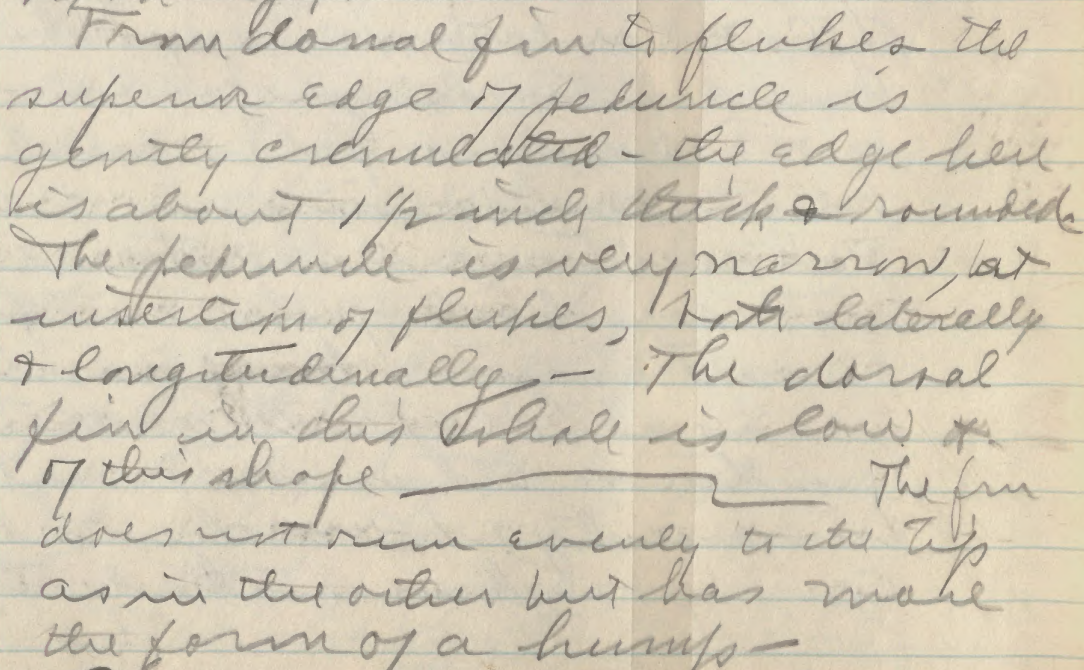 From dorsal fin to flukes the
superior edge of peduncle is
gently crenulated - the edge here
is about 1 1/2 inch thick & rounded.
The peduncle is very narrow, at
insertion of flukes, both laterally
& longitudinally - The dorsal
fin in this whale is low &
of this shape The fin
does not run evenly to the tip
as in the other but has more
the form of a hump -